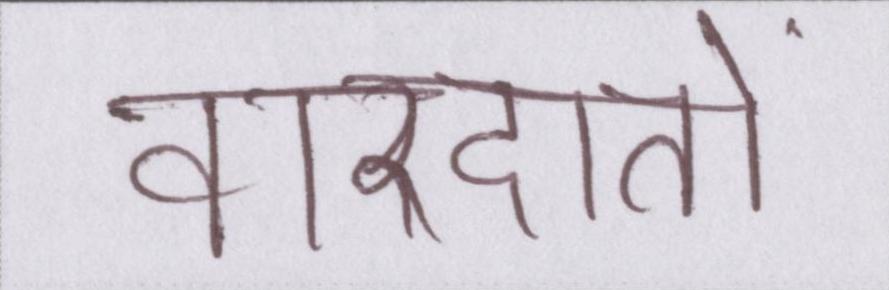 वारदातों